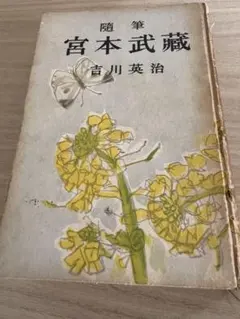 隨筆
宮本武藏
吉川英治